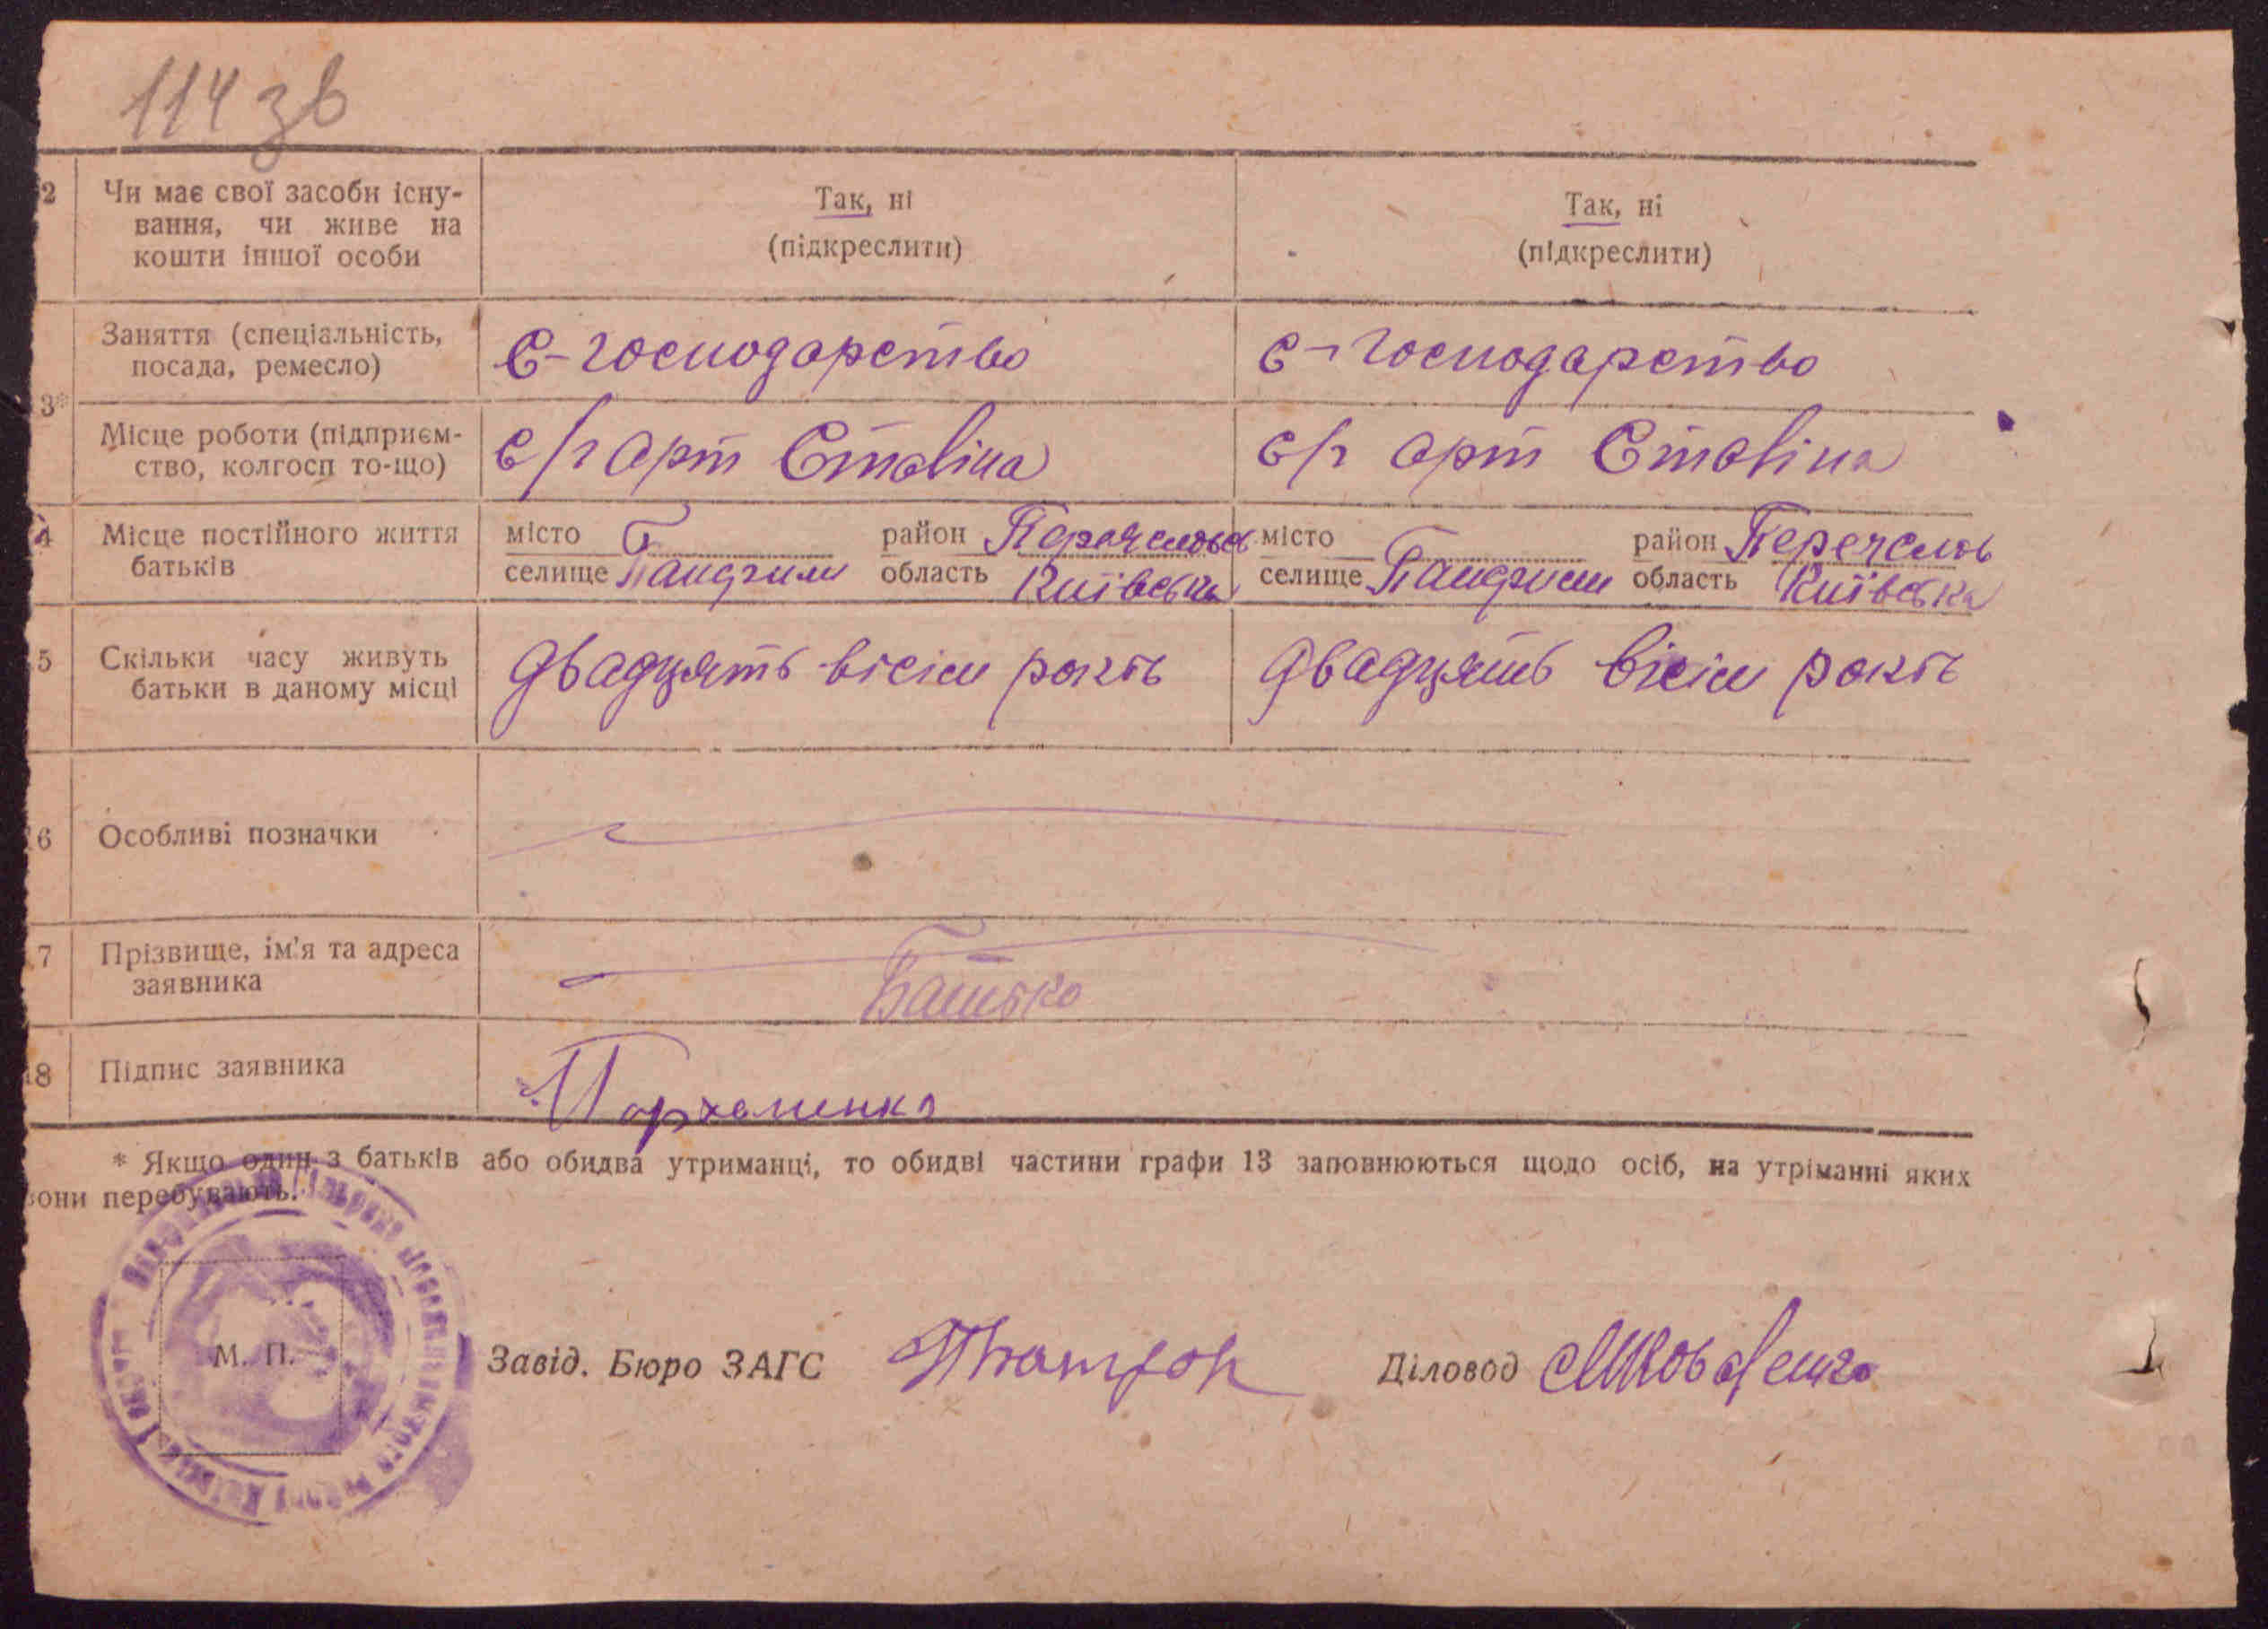 114 зв
2 Чи має свої засоби існу-
вання, чи живе на
кошти іншої особи
Так, ні
(підкреслити)
Так, ні
(підкреслити)
3*
Заняття (спеціальність,
посада, ремесло)
С-господарство
с-господарство
Місце роботи (підприєм-
ство, колгосп то-що)
с/г арт Сталіна
с/г арт Сталіна
4 Місце постійного життя
батьків
місто
селище
район
область Київська
місто
селище
район
область Київська
5 Скільки часу живуть
батьки в даному місці
двадцять вісім років
двадцять вісім років
6 Особливі позначки
7 Прізвище, ім'я та адреса
заявника
Батько
18 Підпис заявника
Пархоменко
* Якщо один з батьків або обидва утриманці, то обидві частини графи 13 заповнюються щодо осіб, на утріманні яких
вони перебувають.
М. П.
Завід. Бюро ЗАГС
Діловод